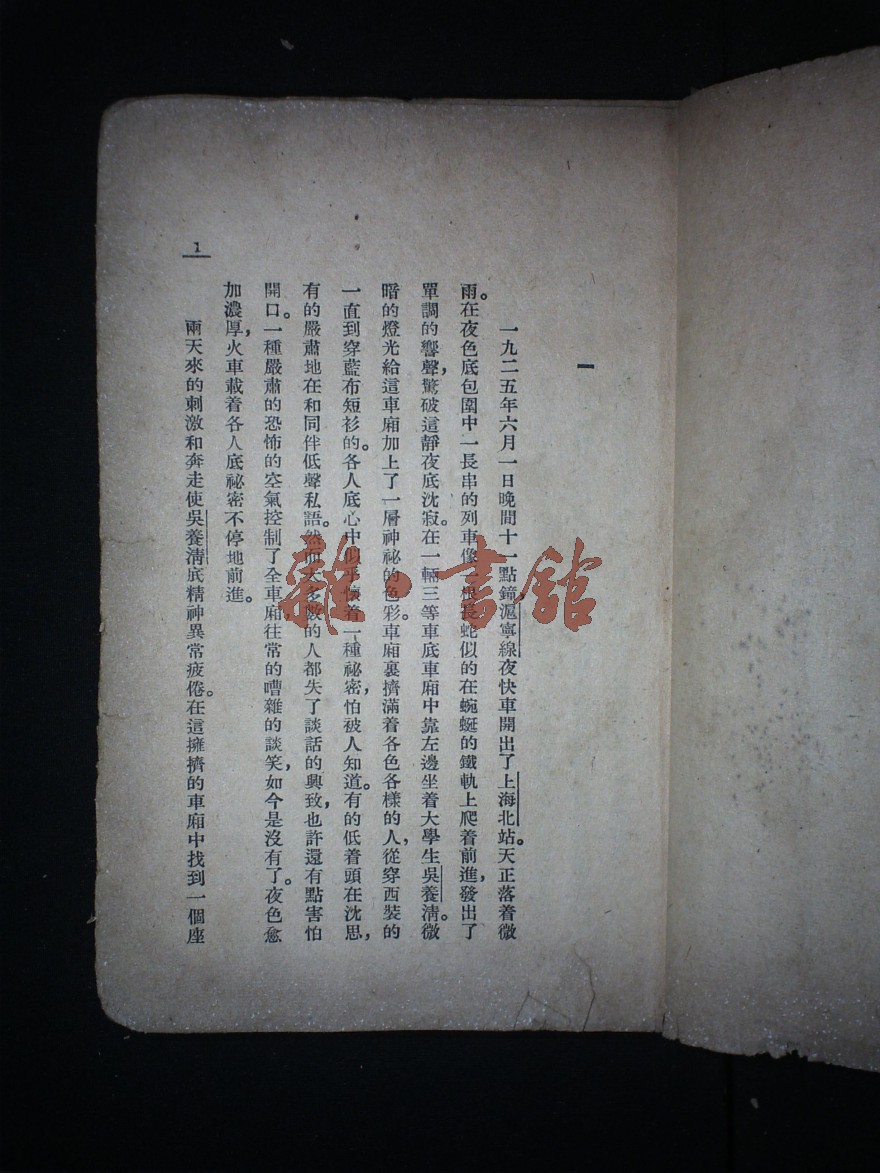 一
一九二五年六月一日晚間十一點鐘,滬寧線夜快車開出了上海北站。天正落着微
雨。在夜色底包圍中一長串的列車像一根長蛇似的在蜿蜒的鐵軌上爬着前進,發出了
單調的響聲,驚破這靜夜底沈寂。在一輛三等車底車廂中靠左邊坐着大學生吳養清。微
暗的燈光給這車廂加上了一層神祕的色彩。車廂裏擠滿着各色各樣的人,從穿西裝的
一直到穿藍布短衫的。各人底心中似乎懷着一種祕密,怕被人知道。有的低着頭在沈思,
有的嚴肅地在和同伴低聲私語。然而大多數的人都失了談話的興致,也許還有點害怕
開口。一種嚴肅的恐怖的空氣控制了全車廂,往常的嘈雜的談笑,如今是沒有了。夜色愈
加濃厚,火車載着各人底祕密不停地前進。
兩天來的刺激和奔走使吳養清底精神異常疲倦。在這擁擠的車廂中找到一個座
1
雜·書館